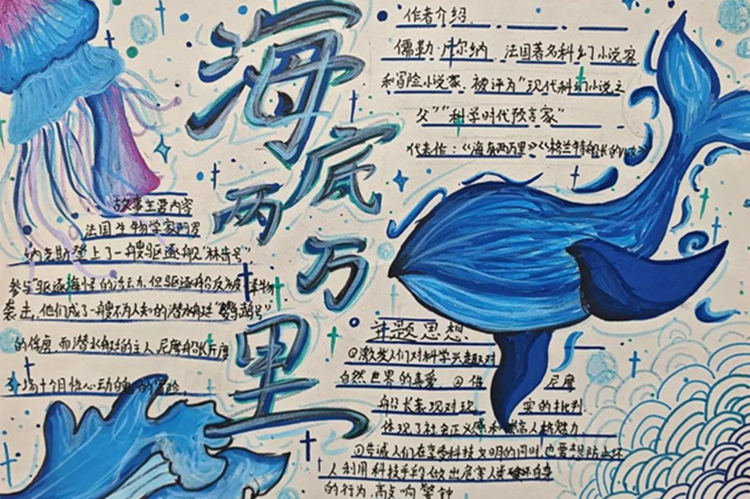 海底两万里
作者介绍
儒勒·凡尔纳 法国著名科幻小说家
和冒险小说家,被评为"现代科幻小说之
父""科学时代预言家"
代表作:《海底两万里》《格兰特船长的儿女》
故事主要内容
法国生物学家阿罗
纳克斯登上了一艘驱逐舰"林肯号"
参与驱逐海怪的活动,但驱逐舰反为怪物
袭击,他们成了一艘不为人知的潜水艇"鹦鹉螺号"
的俘虏,而潜水艇的主人尼摩船长
十个月惊心动魄的冒险。
主题思想
①激发人们对科学兴趣对
自然世界的喜爱 ② 尼摩
船长表现对现 实的批判
体现了社会正义感和 人格魅力
③告诫人们在享受科技文明的同时也要
人利用科技手段做出危害人类
的行为,高声响警钟